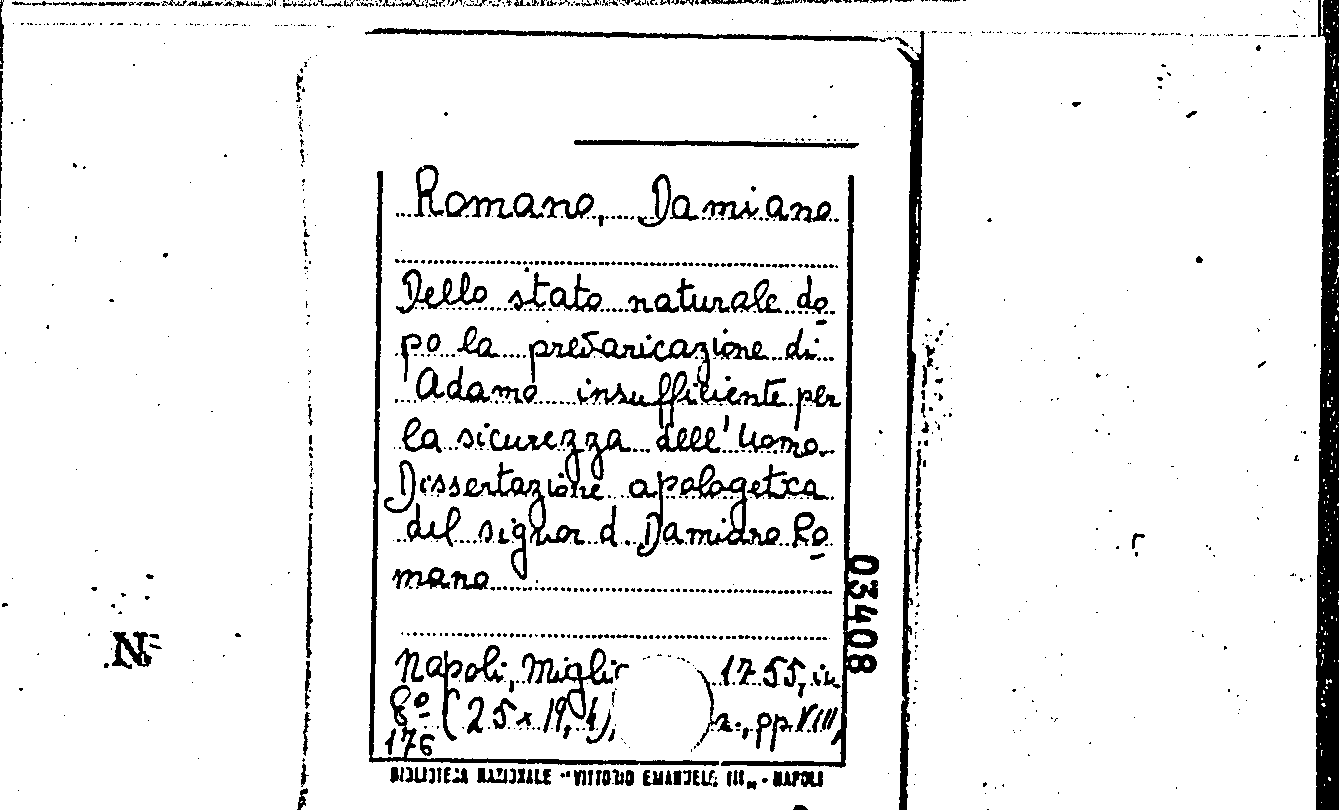 Romano, Damiano
Dello stato naturale do
po la prevaricazione di
Adamo insufficiente per
la sicurezza dell'Uomo.
Dissertazione apologetica
del signor d. Damiano Ro
mano
Napoli, Miglic 1755, in
8º (25x19,4), z., pp. VIII,
176
BIBLIOTECA NAZIONALE "VITTORIO EMANUELE III" - NAPOLI
03408
N